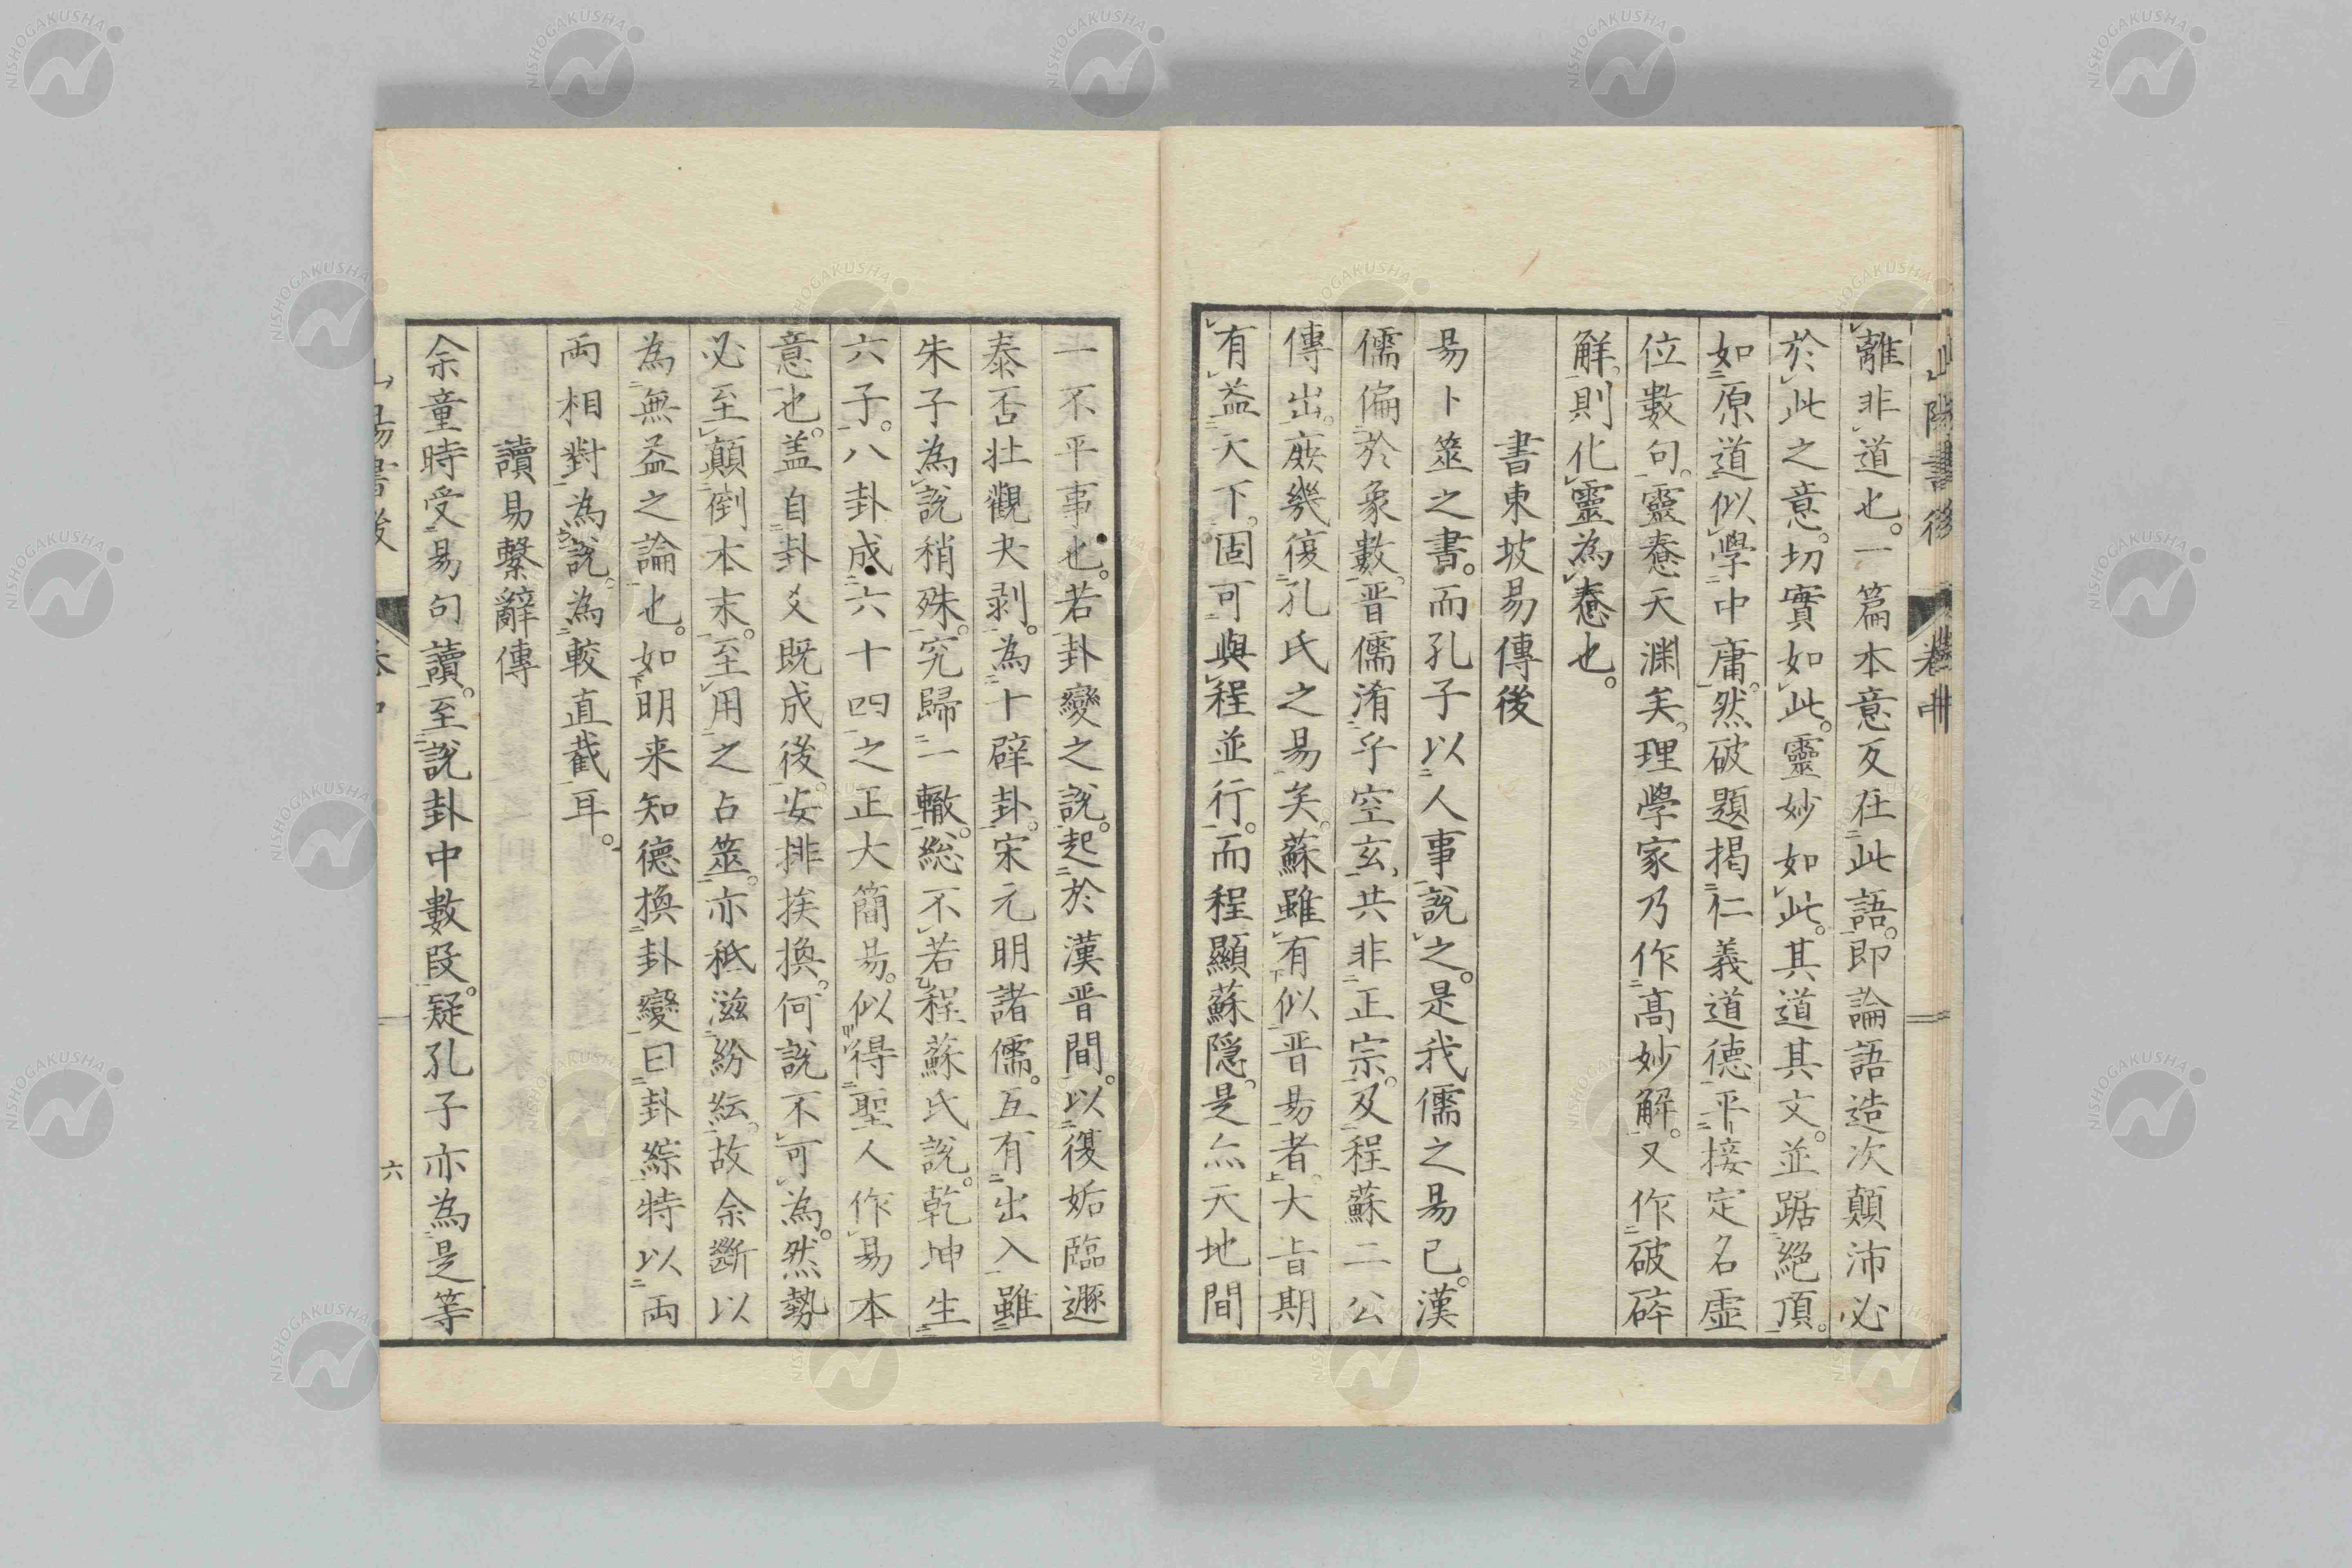 山陽書後 卷中
離非道也。一篇本意反在此語。即論語造次顛沛必
於此之意。切實如此。靈妙如此。其道其文。並踞絕頂。
如原道似學中庸。然破題揭仁義道德平接定名虛
位數句。靈蠢天淵矣。理學家乃作高妙解。又作破碎
解。則化靈為蠢也。
書東坡易傳後
易卜筮之書。而孔子以人事說之。是我儒之易已。漢
儒偏於象數。晋儒淆乎空玄、共非正宗。及程蘇二公
傳出。庶幾復孔氏之易矣。蘇雖有似晋易者。大旨期
有益天下。固可與程並行。而程顯蘇隠。是亦天地間
一不平事也。若卦變之說。起於漢晋間。以復姤臨遯
泰否壮觀夬剥。為十辟卦。宋元明諸儒。互有出入雖
朱子為說稍殊。究歸一轍。総不若程蘇氏說。乾坤生
六子。八卦成六十四之正大簡易。似得聖人作易本
意也。盖自卦爻既成後。安排挨換。何說不可為。然勢
必至顛倒本末。至用之占筮。亦秪滋紛紜。故余斷以
為無益之論也。如明来知德換卦變曰卦綜特以両
両相對為說。為較直截耳。
讀易繫辭傳
余童時受易句讀。至說卦中數段。疑孔子亦為是等
山陽書後 卷中 六